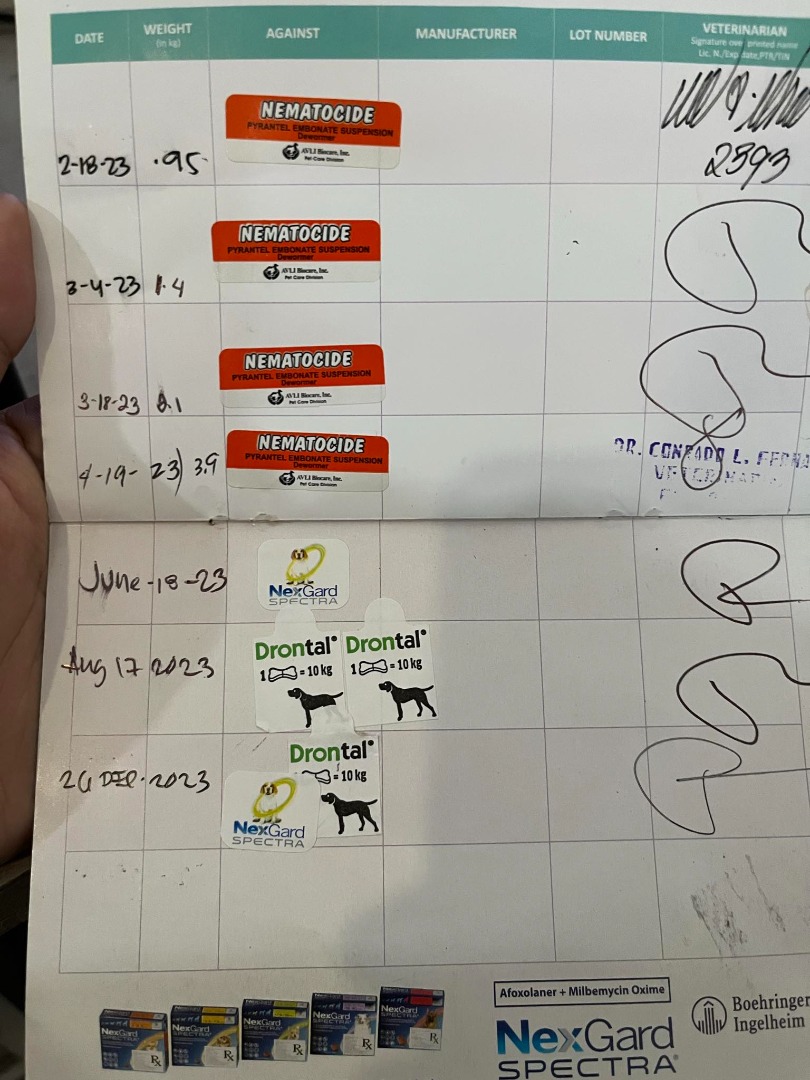 DATE
WEIGHT
(in kg)
AGAINST
MANUFACTURER
LOT NUMBER
VETERINARIAN
Signature over printed name
Lic. N./Exp. date,PTR/TIN
2-18-23
.95
NEMATOCIDE
PYRANTEL EMBONATE SUSPENSION
Dewormer
AVLJ Biocare, Inc.
Pet Care Division
2593
3-4-23
1.4
NEMATOCIDE
PYRANTEL EMBONATE SUSPENSION
Dewormer
AVLJ Biocare, Inc.
Pet Care Division
3-18-23
2.1
NEMATOCIDE
PYRANTEL EMBONATE SUSPENSION
Dewormer
AVLJ Biocare, Inc.
Pet Care Division
4-19-23
3.9
NEMATOCIDE
PYRANTEL EMBONATE SUSPENSION
Dewormer
AVLJ Biocare, Inc.
Pet Care Division
DR. CONRADO L.
June-18-23
NexGard
SPECTRA
Aug 17 2023
Drontal®
1 = 10 kg
Drontal®
1 = 10 kg
2023
Drontal®
= 10 kg
NexGard
SPECTRA
NexGard
SPECTRA
Rx
NexGard
SPECTRA
Rx
NexGard
SPECTRA
Rx
NexGard
SPECTRA
Rx
NexGard
SPECTRA
Rx
Afoxolaner + Milbemycin Oxime
NexGard
SPECTRA®
Boehringer
Ingelheim